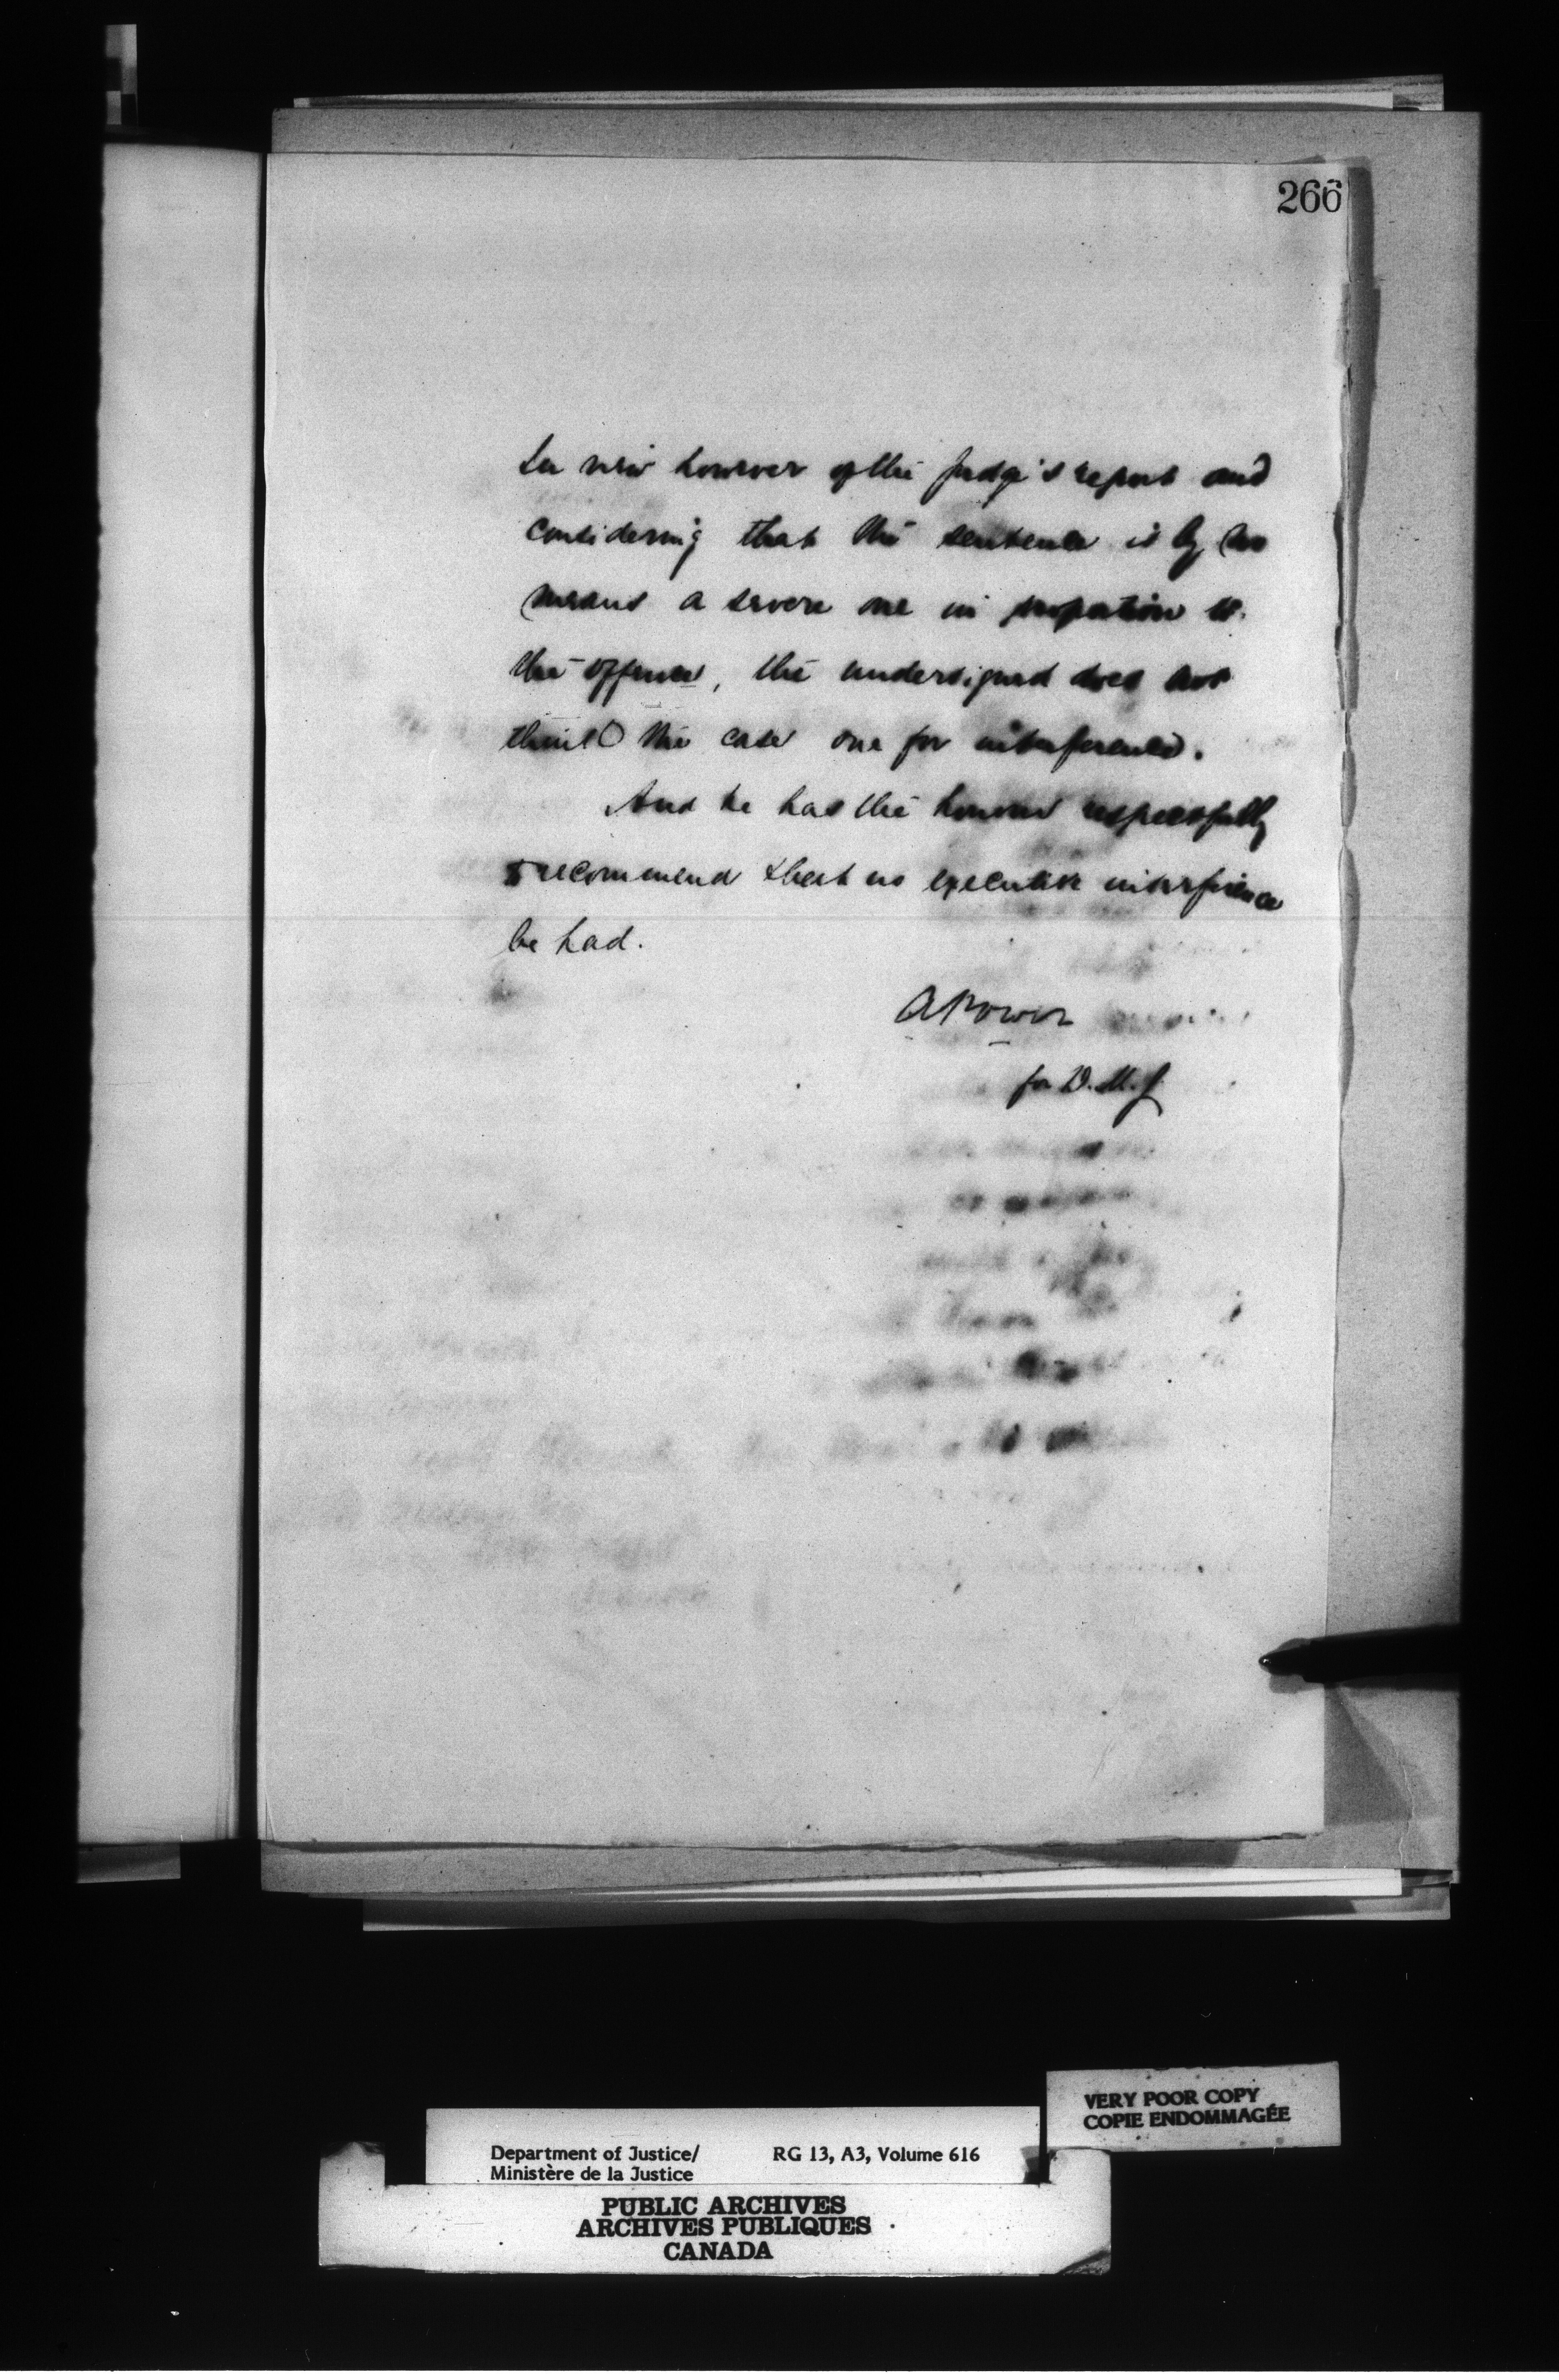 266
In view however of the Judge's report and
considering that the sentence is by no
means a severe one in proportion to
the offence, the undersigned does not
think the case one for interference.
And he has the honour respectfully
to recommend that no executive interference
be had.
A Power
for D.M.J.
VERY POOR COPY
COPIE ENDOMMAGÉE
Department of Justice/ RG 13, A3, Volume 616
Ministère de la Justice
PUBLIC ARCHIVES
ARCHIVES PUBLIQUES
CANADA